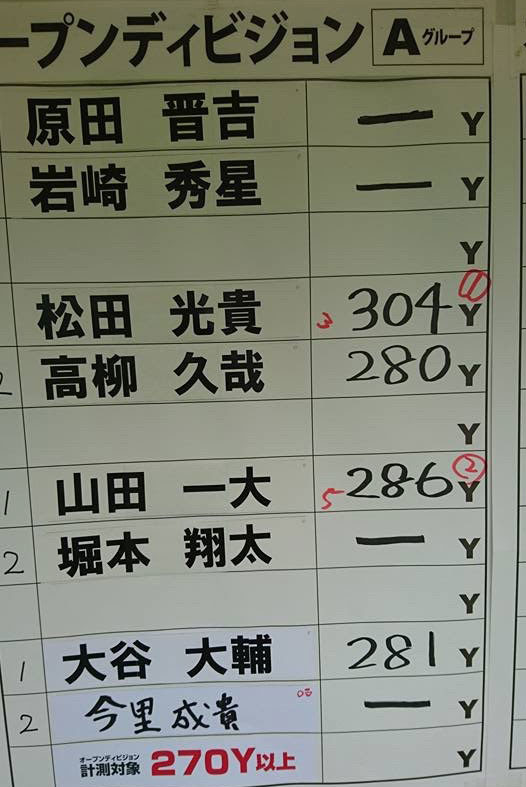 ープンディビジョン Aグループ
原田 晋吉 ー Y
岩崎 秀星 ー Y
Y
松田 光貴 3 304 Y ①
2 高柳 久哉 280 Y
Y
1 山田 一大 5 286 Y ②
2 堀本 翔太 ー Y
Y
1 大谷 大輔 281 Y
2 今里 成貴 ー Y
オープンディビジョン
計測対象 270Y以上 Y